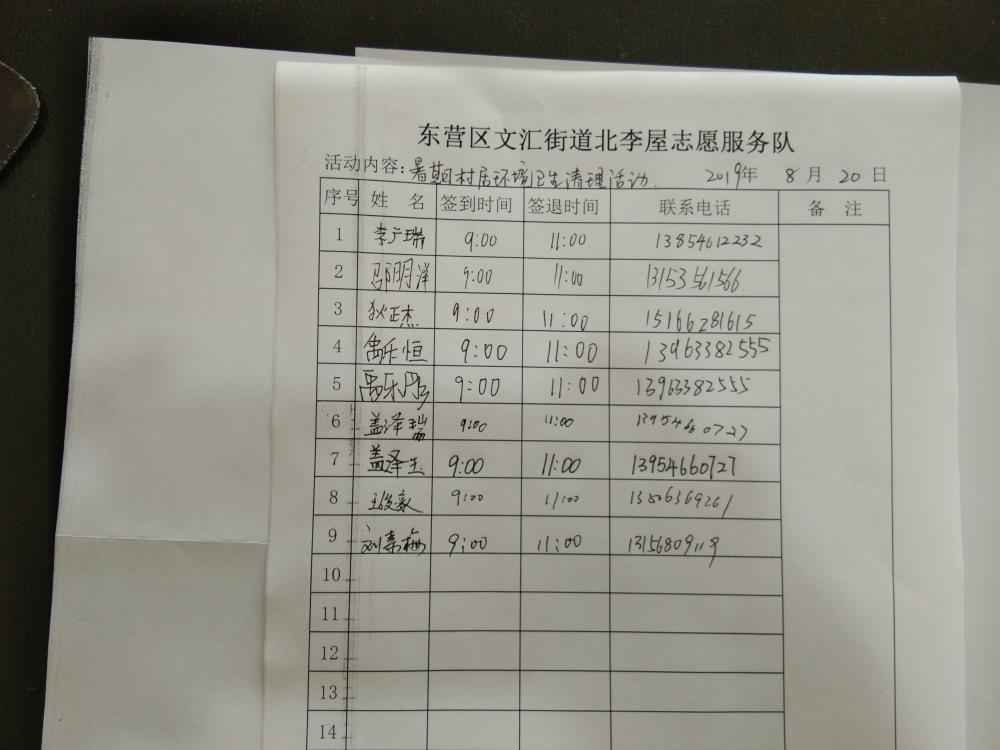 东营区文汇街道北李屋志愿服务队
活动内容:暑期村居环境卫生清理活动. 2019年 8 月 20 日
序号 姓 名 签到时间 签退时间 联系电话 备 注
1 李广瑞 9:00 11:00 13854612232
2 邵明洋 9:00 11:00 13153561566
3 狄正杰 9:00 11:00 15166281615
4 禹乐恒 9:00 11:00 13963382555
5 禹乐彤 9:00 11:00 13963382555
6 盖泽瑞 9:00 11:00 13954660727
7 盖泽玉 9:00 11:00 13954660727
8 王俊豪 9:00 11:00 13806369261
9 刘素梅 9:00 11:00 13156809119
10
11
12
13
14